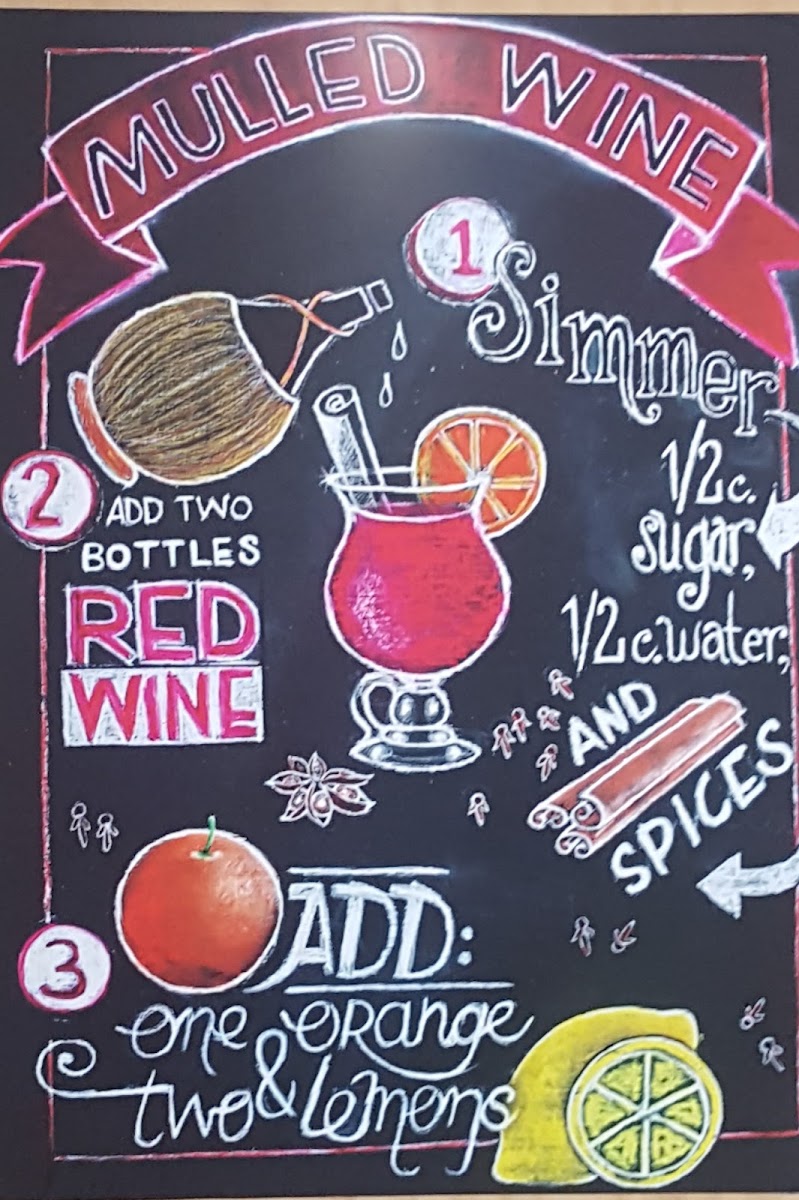 MULLED WINE
1
Simmer
1/2 c.
sugar,
1/2 c. water,
AND
SPICES
2
ADD TWO
BOTTLES
RED
WINE
3
ADD:
one orange
& two lemons